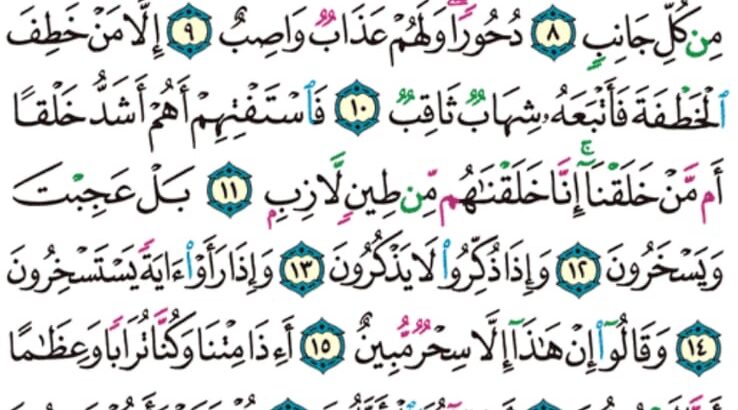 مِن كُلِّ جَانِبٍ ٨ دُحُورًا وَلَهُمْ عَذَابٌ وَاصِبٌ ٩ إِلَّا مَنْ خَطِفَ
ٱلْخَطْفَةَ فَأَتْبَعَهُۥ شِهَابٌ ثَاقِبٌ ١٠ فَٱسْتَفْتِهِمْ أَهُمْ أَشَدُّ خَلْقًا
أَم مَّنْ خَلَقْنَآ ۚ إِنَّا خَلَقْنَٰهُم مِّن طِينٍ لَّازِبٍ ١١ بَلْ عَجِبْتَ
وَيَسْخَرُونَ ١٢ وَإِذَا ذُكِّرُوا۟ لَا يَذْكُرُونَ ١٣ وَإِذَا رَأَوْا۟ ءَايَةً يَسْتَسْخِرُونَ
١٤ وَقَالُوٓا۟ إِنْ هَٰذَآ إِلَّا سِحْرٌ مُّبِينٌ ١٥ أَءِذَا مِتْنَا وَكُنَّا تُرَابًا وَعِظَٰمًا